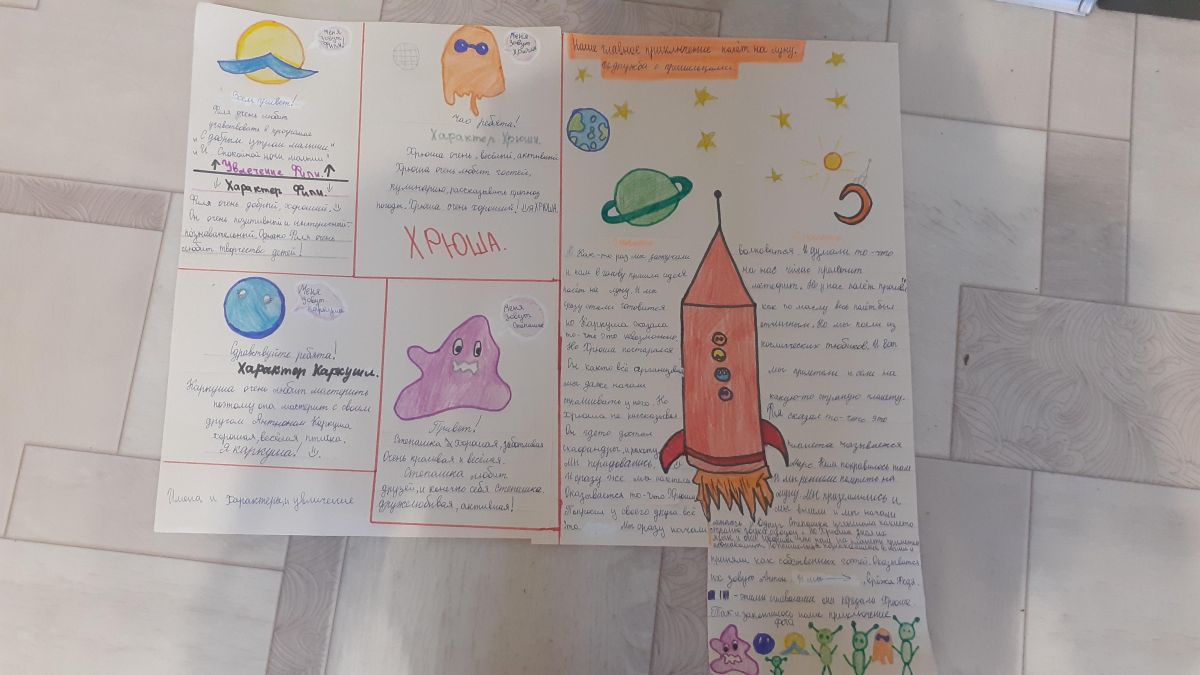 Меня
зовут
Филя!
Всем привет!
Филя очень любит
учавствовать в програме
„С добрым утром малыши“
„И Спокойной ночи малыши“
Увлечение Фили.
Характер Фили.
Филя очень добрый, хороший.
Он очень позитивный и интересный-
познавательный. Однако Филя очень
любит творчество детей!
Меня
зовут
Хрюша
Чао ребята!
Характер Хрюши.
Хрюша очень весёлый, активный
Хрюша очень любит гостей,
кулинарию, рассказывать прогноз
погоды. Хрюша очень хороший! Я ХРЮША
ХРЮША.
Меня
зовут
Каркуша
Здравствуйте ребята!
Характер Каркуши.
Каркуша очень любит мастерить
поэтому она мастерит с своим
другом Антионом Каркуша
хорошая, весёлая птичка.
Я каркуша!
Меня
зовут
Степашка
Привет!
Степашка хорошая, заботливая
Очень красивая и весёлая.
Степашка любит
друзей, и конечно себя Степашка
дружелюбная, активная!
Имена и характеры, и увлечение
Наше главное приключение полёт на луну.
дружба с пришельцами.
Как-то раз мы заскучали
и нам в голову пришла идея
полёт на луну. И мы
сразу стали готовится
но Каркуша сказала
то-что это невозможно
Но Хрюша постарался
Он както всё организовал
мы даже начали
спрашивать у него. Но
Хрюша не рассказывал
Он гдето достал
скафандры, и ракету
Мы порадовались,
И сразу же мы полетели
Оказывается то-что Хрюша
Попросил у своего друга всё
это. Мы сразу начали
волноватся И думали то-что
на нас чичас прилетит
метеорит. Но у нас полёт прошёл
как по маслу весь полёт был
отличным. Но мы ели из
космических тюбиков. И вот
мы прилетели и сели на
какую-то странную планету.
Филя сказал то-что это
планета называется
Марс. Нам понравилось там
И мы решили полететь на
луну. Мы приземлились и
мы вышли и мы начали
вдруг Степашка услышала какието
странные звуки Но Хрюша знал их
язык и они
приняли как собственных гостей. Оказывается
их зовут Антон, Серёжа
Так и закончилось наше приключение
фото